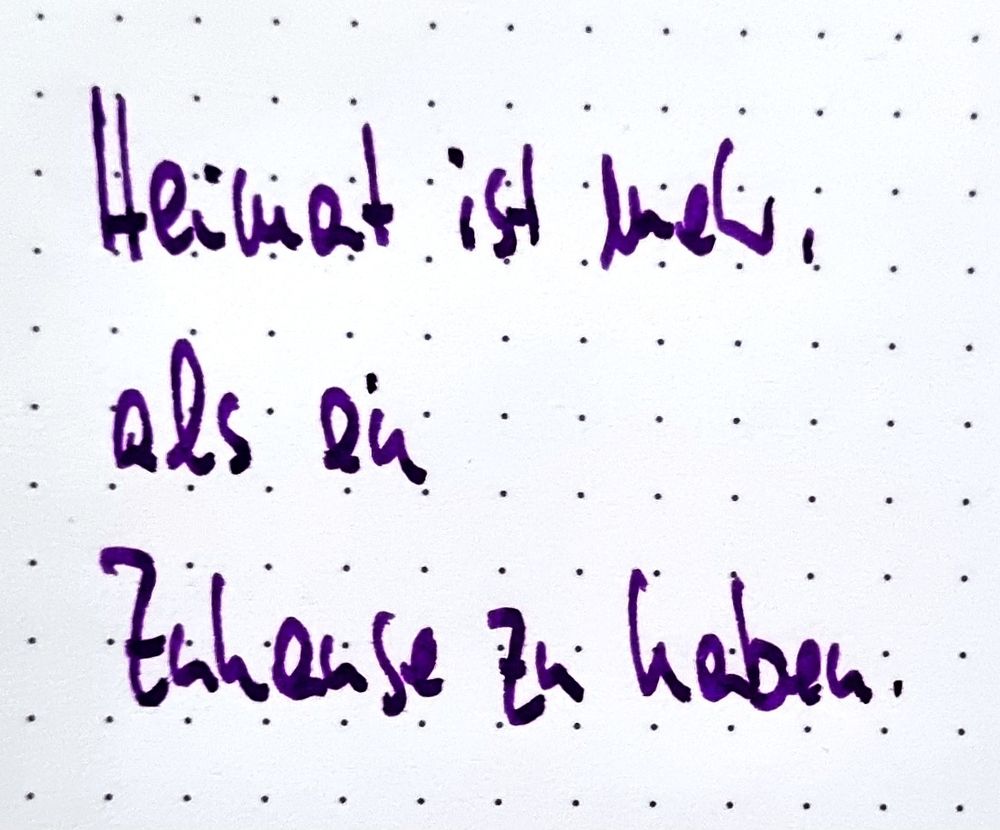 Heimat ist mehr,
als ein
Zuhause zu haben.